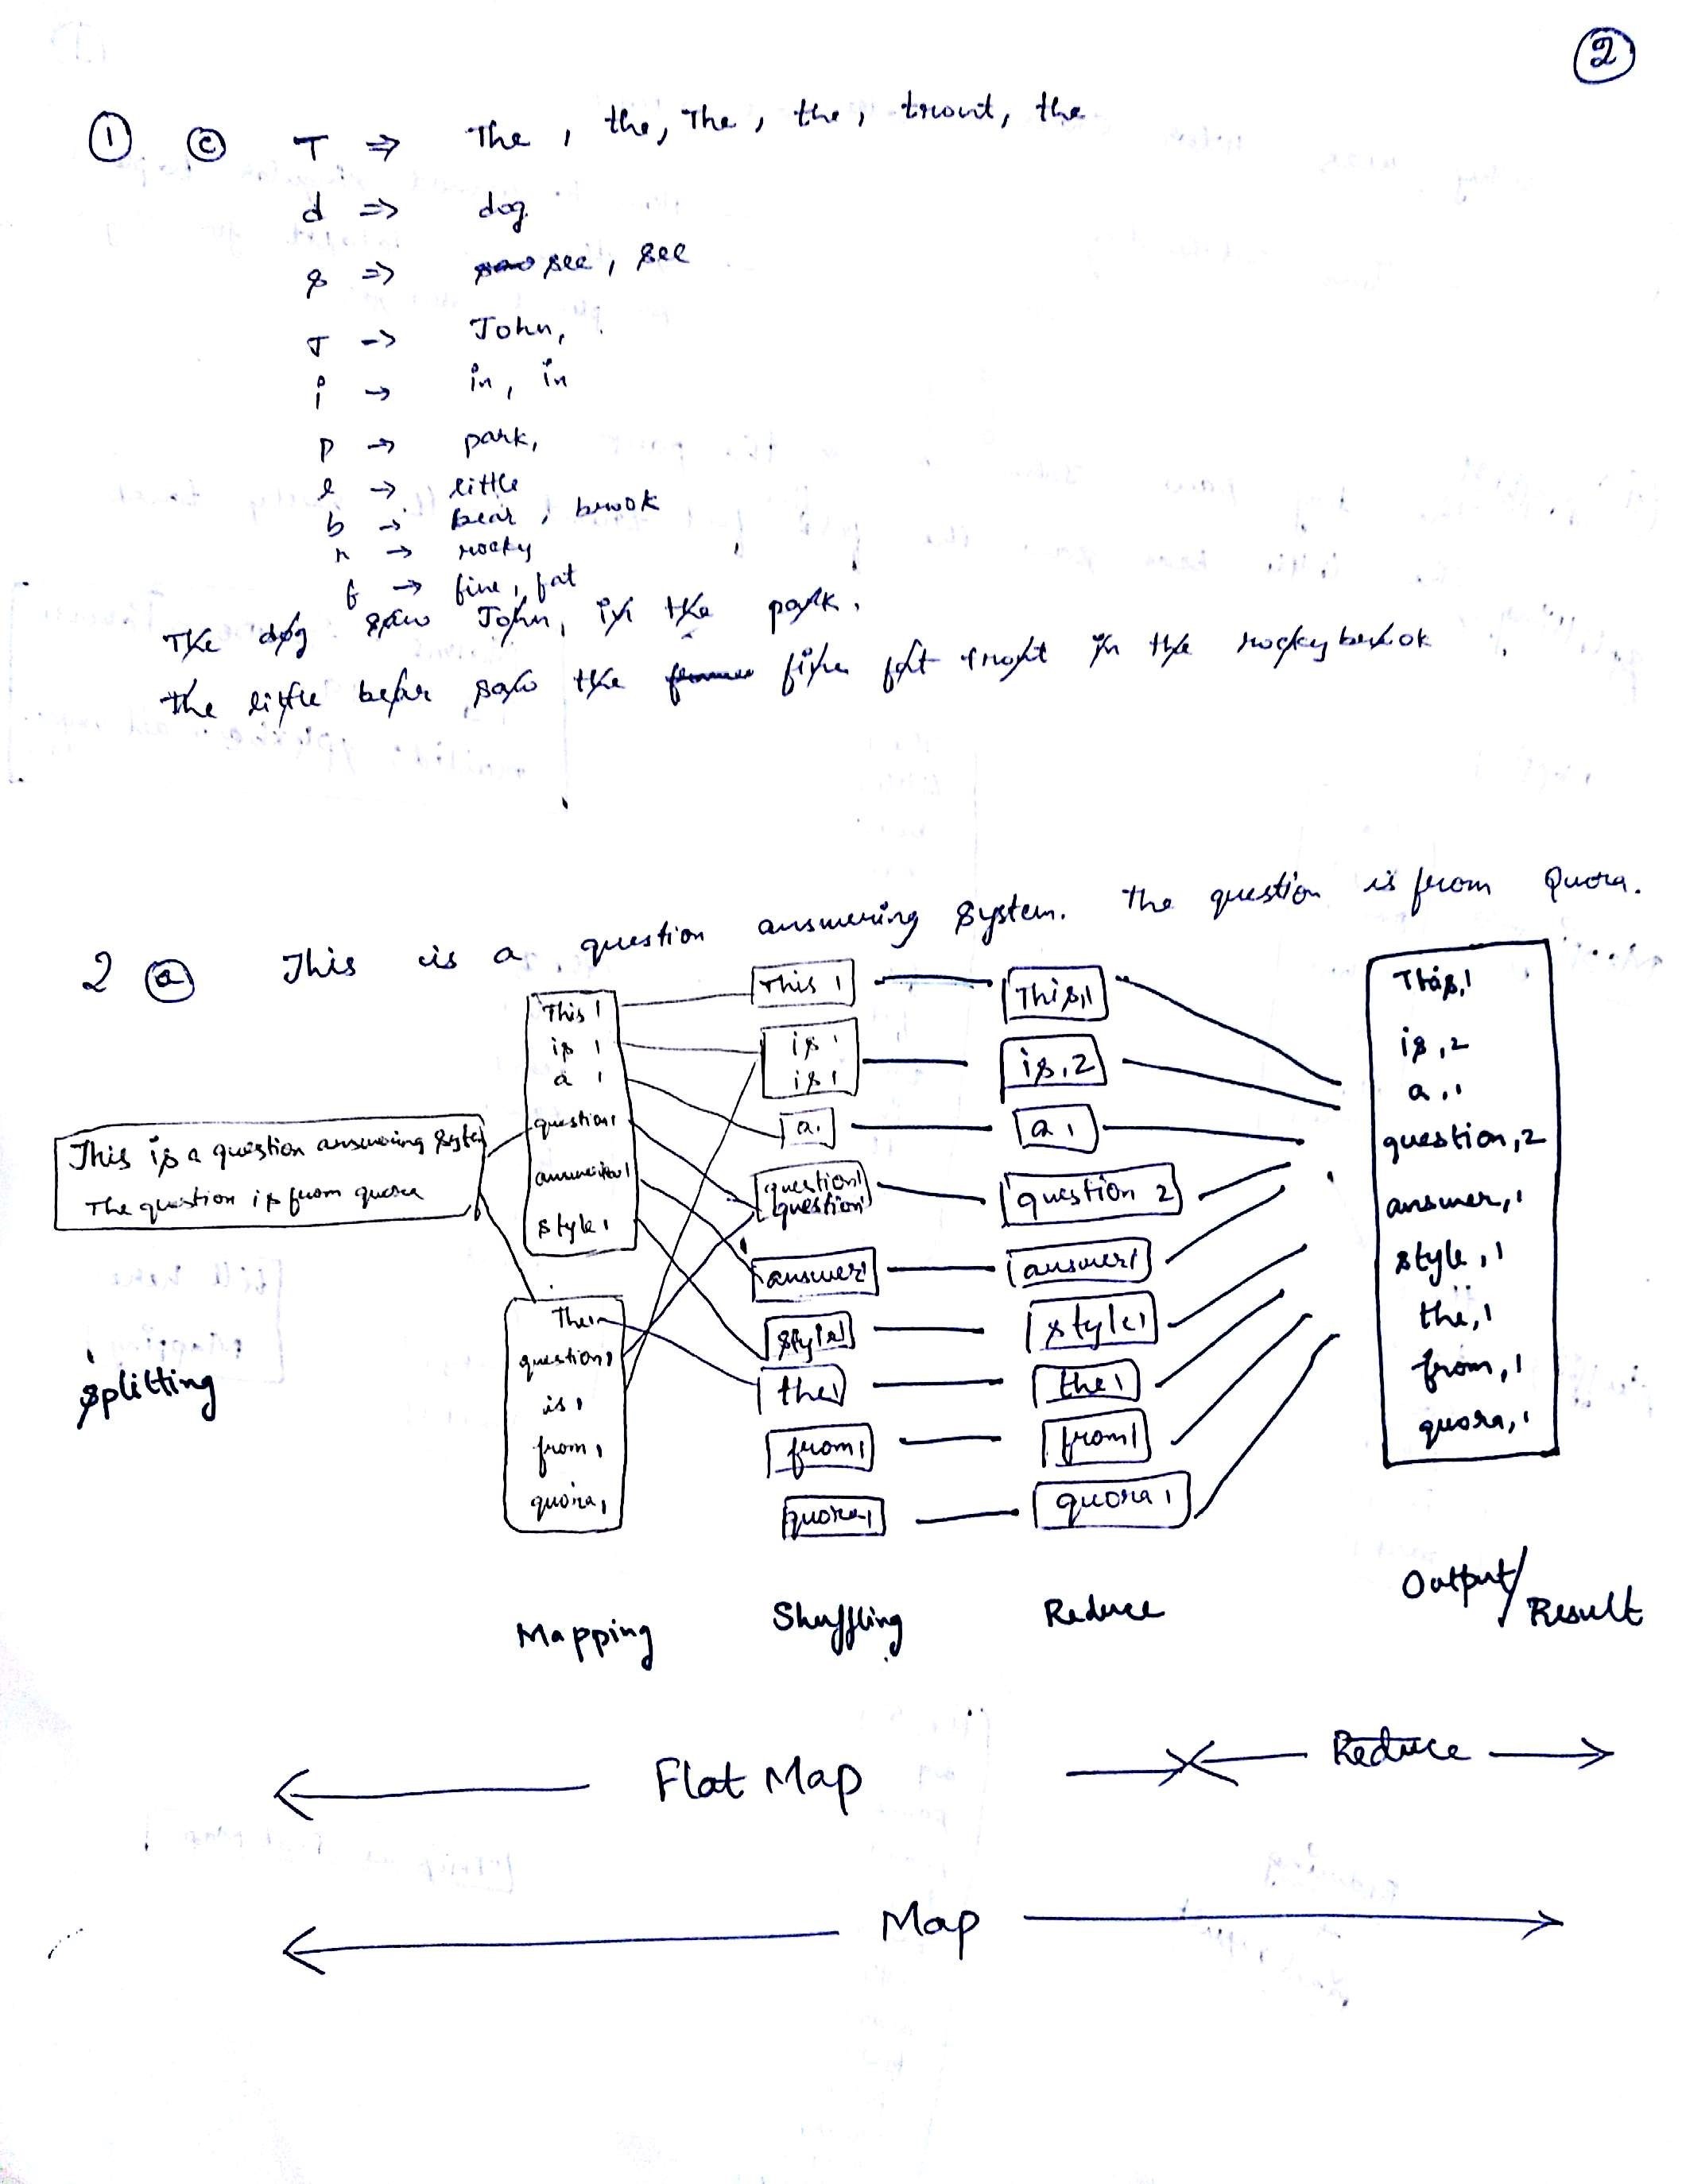 2
1 c T ⇒ The , the, The, the, trout, the
d ⇒ dog
s ⇒ see, see
J → John,
i → in, in
p → park,
l → little
b → bear, brook
r → rocky
f → fine, fat
The dog saw John, in the park.
The little bear saw the fine fat trout in the rocky brook.
2 a This is a question answering system. The question is from Quora.
This is a question answering system
The question is from quora
splitting
This 1
is 1
a 1
question 1
style 1
The 1
question 1
is 1
from 1
quora 1
Mapping
This 1
is 1
is 1
a 1
question 1
question 1
answer 1
style 1
the 1
from 1
quora 1
Shuffling
This,1
is,2
a 1
question 2
answer 1
style 1
the 1
from 1
quora 1
Reduce
This,1
is,2
a,1
question,2
answer,1
style,1
the,1
from,1
quora,1
Output/Result
Flat Map Reduce
Map